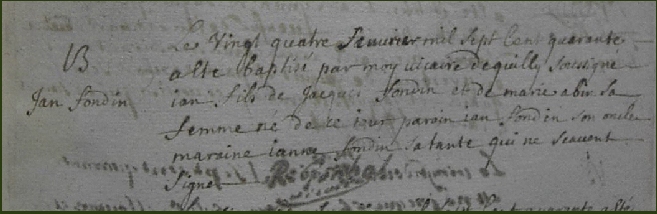 Le Vingt quatre Janvier mil sept Cent quarante
B
a ete Baptisé par moy vicaire de quilly soussigné
Jan fondin
ian fils de Jacques fondin et de marie abin sa
femme né de ce iour parain ian fondin son oncle
maraine ianne fondin sa tante qui ne scavent
signé